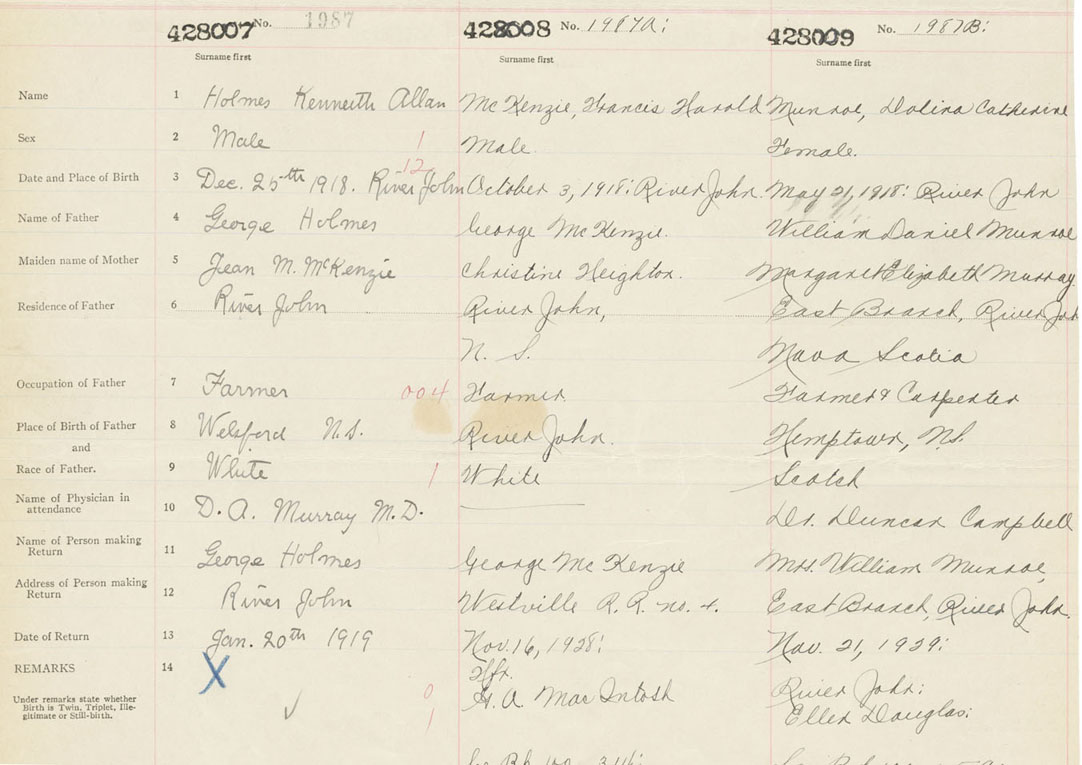 428007 No. 1987 428008 No. 1987A: 428009 No. 1987B:
Surname first Surname first Surname first
Name 1 Holmes Kenneith Allan McKenzie, Francis Harold Munroe, Dolina Catherine
Sex 2 Male 1 Male. Female.
12
Date and Place of Birth 3 Dec. 25th 1918. River John October 3, 1918: River John. May 21, 1918: River John
Name of Father 4 George Holmes George McKenzie. William Daniel Munroe
Maiden name of Mother 5 Jean M. McKenzie Christine Heighton. Margaret Elizabeth Murray
Residence of Father 6 River John River John, East Branch, River Joh
N. S. Nova Scotia
Occupation of Father 7 Farmer 004 Farmer. Farmer & Carpenter
Place of Birth of Father 8 Welsford N.S. River John. Kemptown, N.S.
and
Race of Father. 9 White 1 White Scotch
Name of Physician in
attendance 10 D. A. Murray M.D. Dr. Duncan Campbell
Name of Person making
Return 11 George Holmes George McKenzie Mrs. William Munroe,
Address of Person making
Return 12 River John Westville R. R. no. 4. East Branch, River John.
Date of Return 13 Jan. 20th 1919 Nov. 16, 1928: Nov. 21, 1929:
REMARKS 14 X
Under remarks state whether
Birth is Twin, Triplet, Ille-
gitimate or Still-birth.
0 A. Mac Intosh River John:
1 Ellen Douglas: